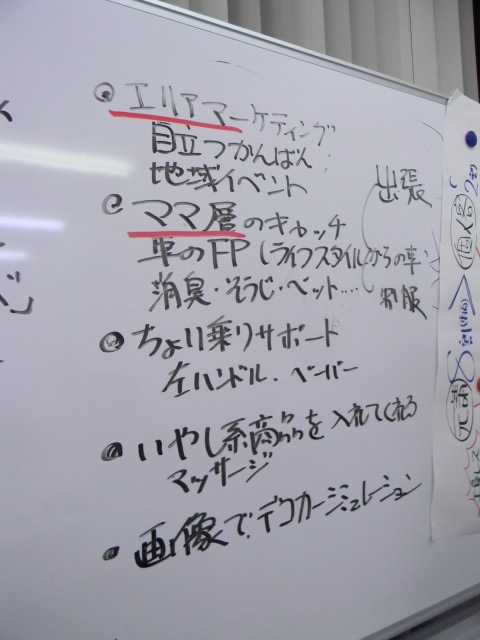 エリアマーケティング
目立つかんばん
地域イベント
ママ層のキャッチ
車のFP(ライフスタイルからの車)
消臭・そうじ・ペット....
出張
制服
ちょい乗りサポート
左ハンドル・ペーパー
いやし系商品を入れてくれる
マッサージ
画像でデコカーシミュレーション